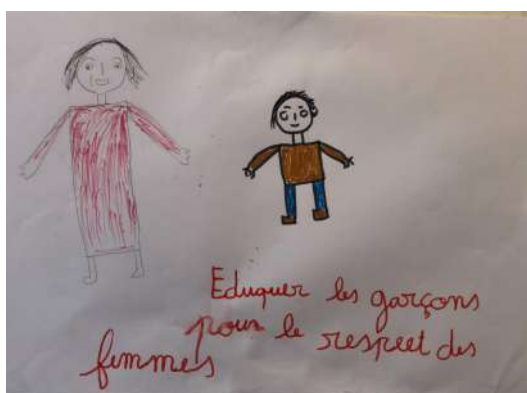 Eduquer les garçons
pour le respect des
femmes